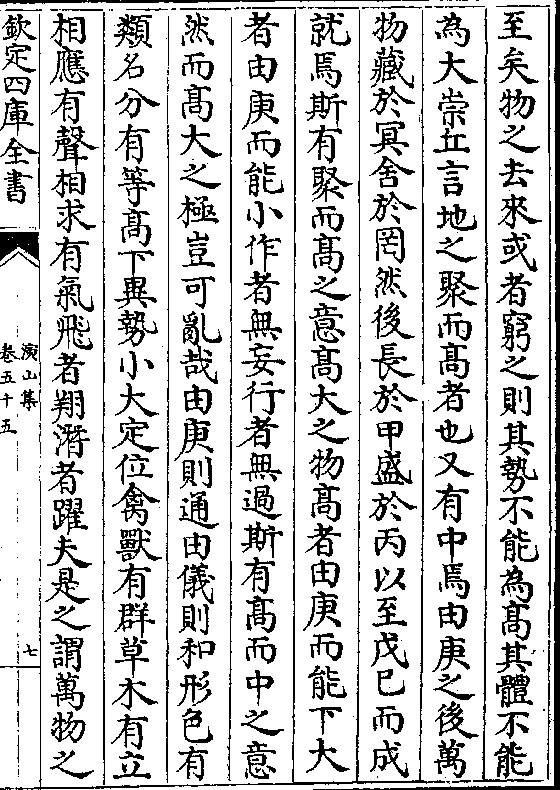 至矣物之去來或者窮之則其勢不能為髙其體不能
為大崇丘言地之聚而髙者也又有中焉由庚之後萬
物藏於冥舍於罔然後長於甲盛於丙以至戊巳而成
就焉斯有聚而髙之意髙大之物髙者由庚而能下大
者由庚而能小作者無妄行者無過斯有髙而中之意
然而髙大之極豈可亂哉由庚則通由儀則和形色有
類名分有等髙下異勢小大定位禽獸有群草木有立
相應有聲相求有氣飛者翔潛者躍夫是之謂萬物之
欽定四庫全書
演山集
卷五十五
七